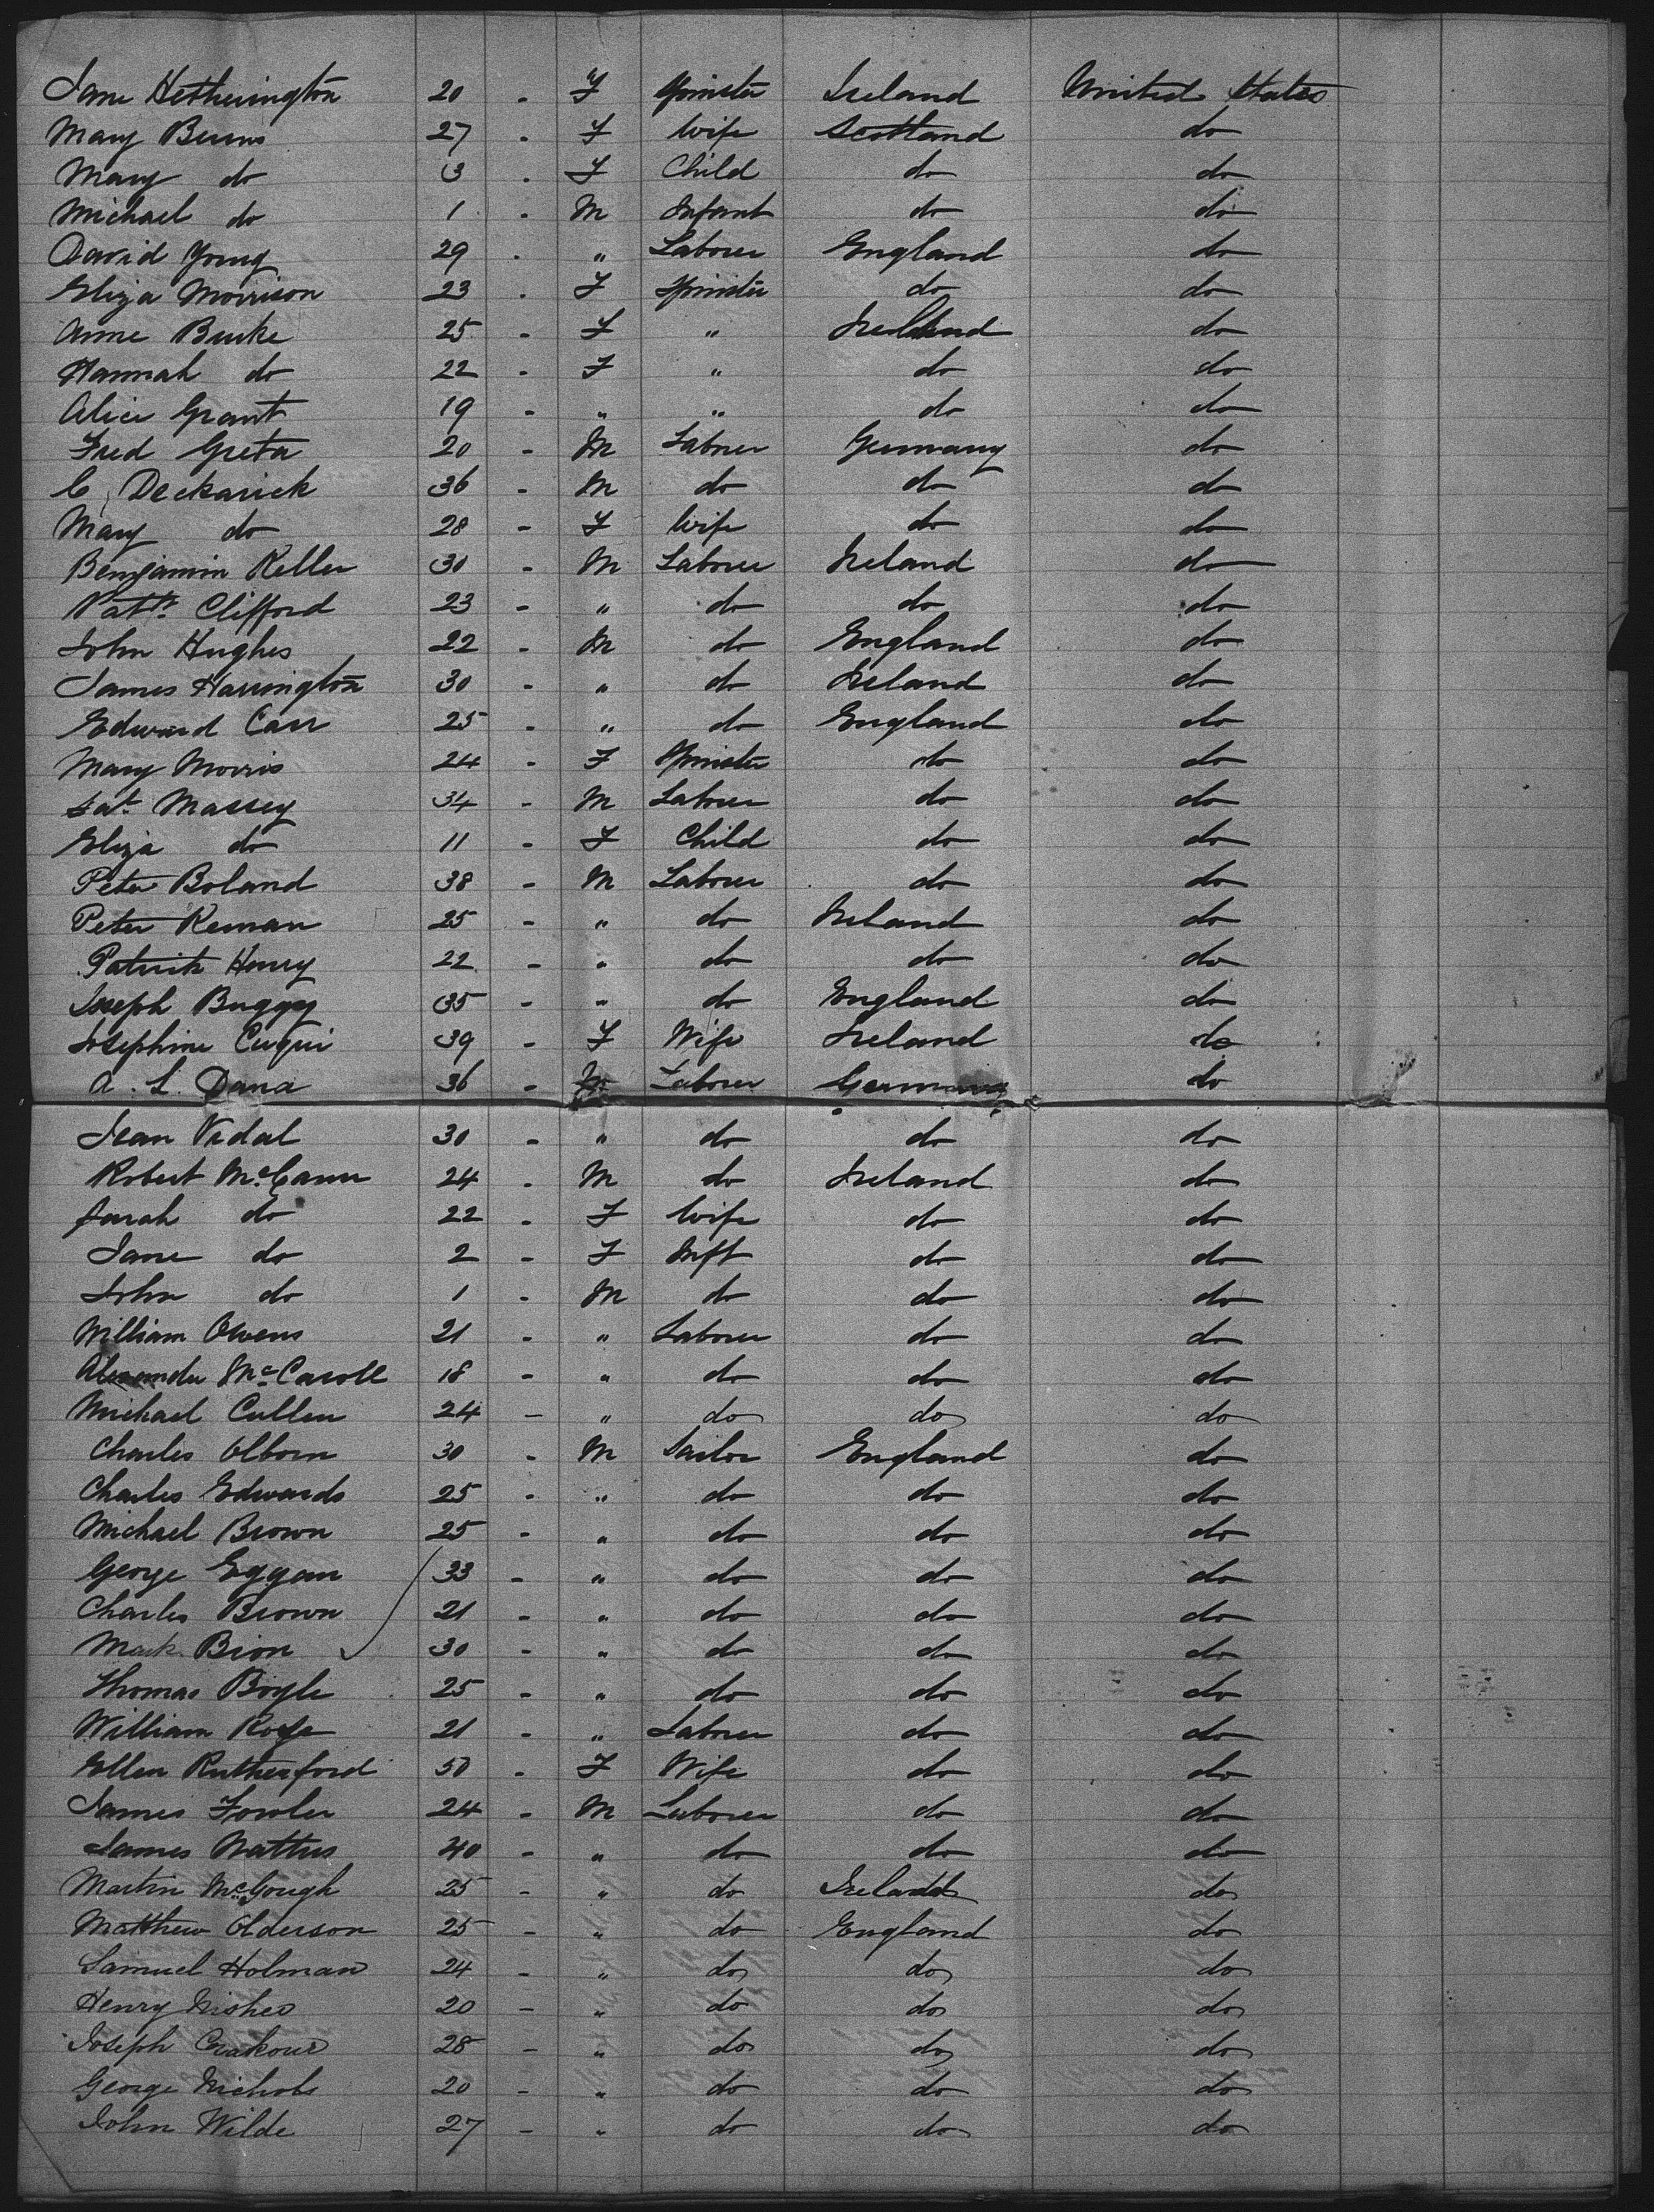 Jane Hetherington 20 - F Spinster Ireland United States
Mary Burns 27 - F Wife Scotland do
Mary do 3 - F Child do do
Michael do 1 - M Infant do do
David Young 29 - " Laborer England do
Eliza Morrison 23 - F Spinster do do
Anne Burke 25 - F " Ireland do
Hannah do 22 - F " do do
Alice Grant 19 - " " do do
Fred Greta 20 - M Laborer Germany do
C Deckarick 36 - M do do do
Mary do 28 - F Wife do do
Benjamin Keller 30 - M Laborer Ireland do
Patk. Clifford 23 - " do do do
John Hughes 22 - M do England do
James Harrington 30 - " do Ireland do
Edward Carr 25 - " do England do
Mary Morris 24 - F Spinster do do
Massey 34 - M Laborer do do
Eliza do 11 - F Child do do
Peter Boland 38 - M Laborer do do
Peter Kernan 25 - " do Ireland do
Patrick Henry 22 - " do do do
Joseph Buggy 35 - " do England do
Josephine 39 - F Wife Ireland do
A. L. Dana 36 - M Laborer Germany do
Jean Vidal 30 - " do do do
Robert McCann 24 - M do Ireland do
Sarah do 22 - F Wife do do
Jane do 2 - F Inft do do
John do 1 - M do do do
William Owens 21 - " Laborer do do
Alexander McCaroll 18 - " do do do
Michael Cullen 24 - " do do do
Charles Olborn 30 - M Sailor England do
Charles Edwards 25 - " do do do
Michael Brown 25 - " do do do
George Eggan 33 - " do do do
Charles Brown 21 - " do do do
Mark Bion 30 - " do do do
Thomas Boyle 25 - " do do do
William 21 - " Laborer do do
Ellen Rutherford 50 - F Wife do do
James Fowler 24 - M Laborer do do
James Watters 40 - " do do do
Martin McGough 25 - " do Ireland do
Matthew Olderson 25 - " do England do
Samuel Holman 24 - " do do do
Henry 20 - " do do do
Joseph 28 - " do do do
George Nichols 20 - " do do do
John Wilde 27 - " do do do